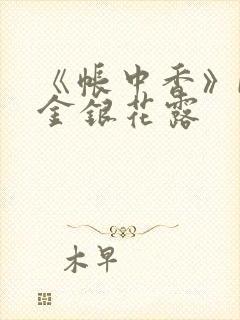 《帐中香》
金银花露
木早